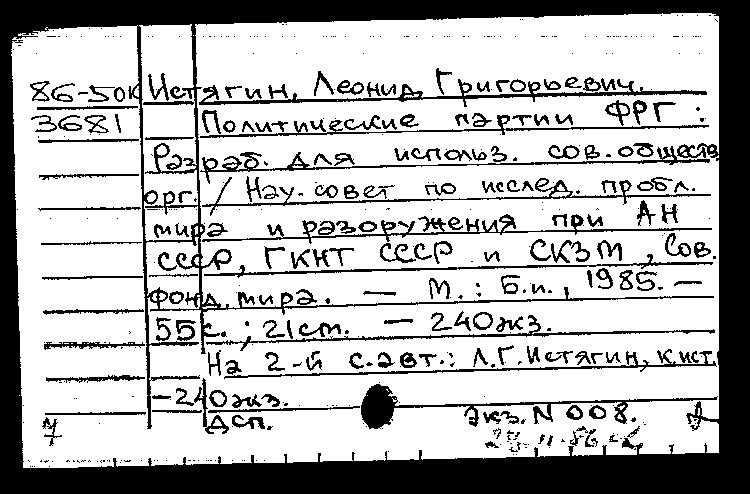 86-5ок Истягин, Леонид Григорьевич.
3681 Политические партии ФРГ :
Разраб. для использ. сов. обществ
орг. / Науч. совет по исслед. пробл.
мира и разоружения при АН
СССР, ГКНТ СССР и СКЗМ, Сов.
фонд мира. — М. : Б.и., 1985. —
55 с. ; 21 см. — 240 экз.
На 2-й с. авт.: Л.Г. Истягин, к.ист.
— 240 экз.
ДСП. экз. N 008.